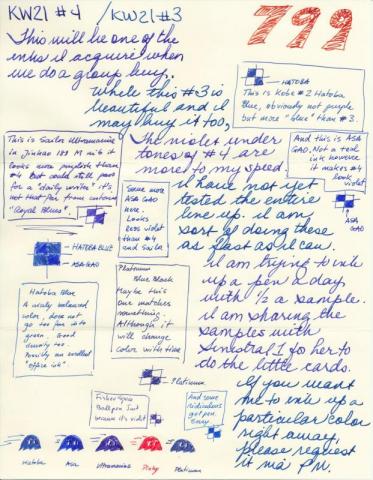 KW21 #4 / KW21 #3
799
This will be one of the
inks I acquire when
we do a group buy,
while this #3 is
beautiful and I
may buy it too,
HATOBA
This is Kobe #2 Hatoba
Blue, obviously not purple
but more "blue" than #3.
This is Sailor Ultramarine
in Jinhao 159 M nib it
looks more purplish than
#4 but could still pass
for a "daily writer" it's
not that far from
"Royal Blues".
The violet under
tones of #4 are
more to my speed.
And this is ASA
GAO. Not a teal
ink however
it makes #4
look
violet
ASA
GAO
Some more
ASA GAO
here.
Looks
less violet
than #4
and Sailor
I have not yet
tested the entire
line up. I am
sort of doing these
as fast as I can.
I am trying to ink
up a pen a day
with 1/2 a sample.
I am sharing the
samples with
to do
the little cards.
HATOBA BLUE
ASA-GAO
Hatoba Blue
A nicely balanced
color, does not
go too far into
green. Good
density too.
Possibly an excellent
"office ink"
Platinum
Blue Black
Maybe this
one matches
something.
Although it
will change
color with time
Platinum
Fisher Space
Ballpen Just
because it's violet
And some
ridiculous
gel pen.
If you want
me to ink up a
particular color
right away,
please request
it via PM.
Hatoba
Asa
Ultramarine
Platinum